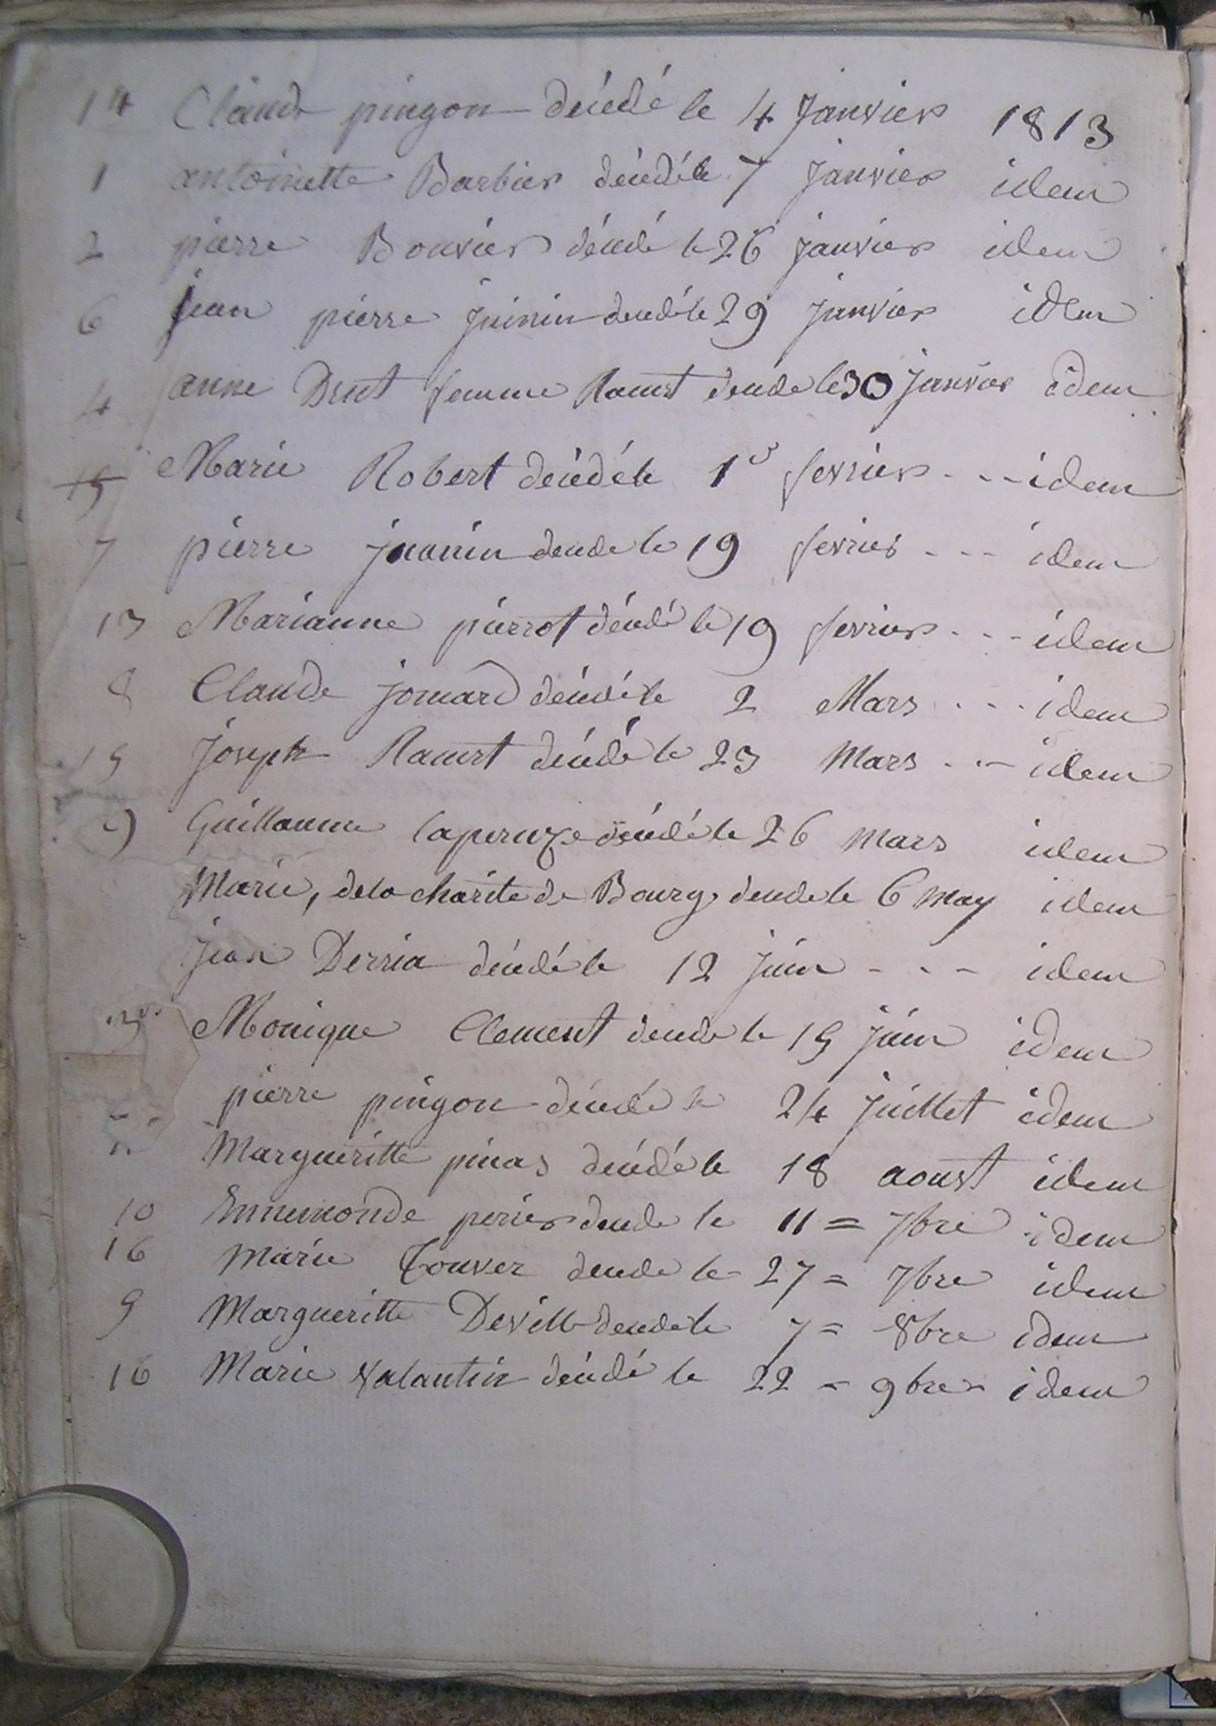 14 Claude pingon décédé le 4 Janvier 1813
1 antoinette Barbier décédé le 7 janvier idem
2 pierre Bouvier décédé le 26 janvier idem
6 jean pierre juinin décédé le 29 janvier idem
4 anne Drut femme Ramst décédé le 30 janvier idem
15 Marie Robert décédé le 1er fevrier - - - idem
7 pierre juanin décédé le 19 fevrier - - - idem
13 Marianne pierrot décédé le 19 fevrier - - - idem
8 Claude jomard décédé le 2 Mars - - - idem
15 joseph Ramst décédé le 23 Mars - - - idem
Guillaume laperuze décédé le 26 mars idem
Marie, de la charite de Bourg décédé le 6 may idem
jean Derria décédé le 12 juin - - - idem
3 Monique Clement décédé le 15 juin idem
pierre pingon décédé le 24 juillet idem
Margueritte pinas décédé le 18 aoust idem
10 Ennemonde perier décédé le 11 = 7bre idem
16 Marie Couver décédé le 27 = 7bre idem
9 Margueritte Deville décédé le 7 = 8bre idem
16 Marie Valantin décédé le 22 = 9bre idem